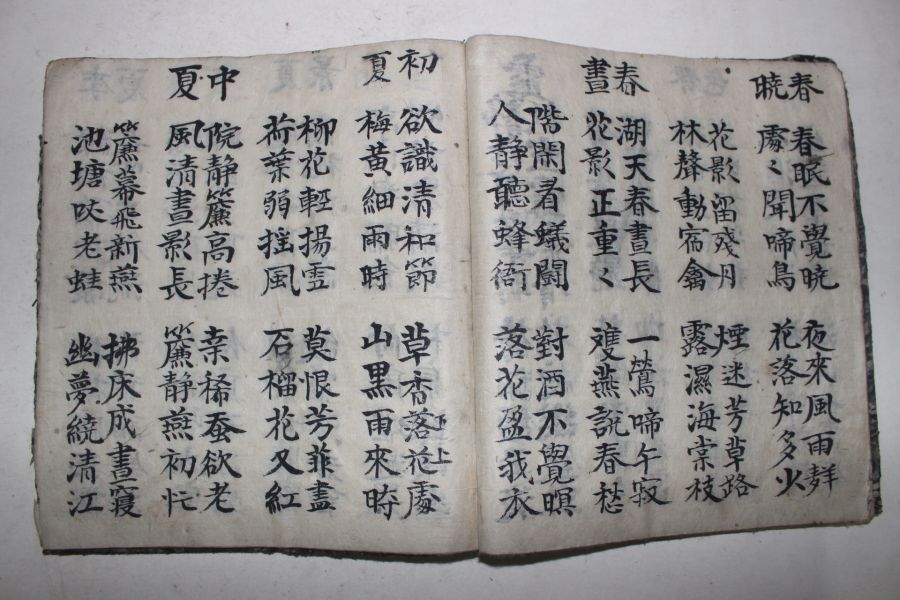 春暁
春眠不覺曉
處〻聞啼鳥
夜來風雨聲
花落知多少
花影留殘月
林聲動宿禽
煙迷芳草路
露濕海棠枝
春晝
湖天春晝長
花影正重〻
一鶯啼午寂
雙燕説春愁
階閑看蟻鬪
人静聽蜂衙
對酒不覺暝
落花盈我衣
初夏
欲識清和節
梅黃細雨時
草香落花處
下上
山黑雨來時
柳花輕揚雪
荷葉弱揺風
莫恨芳菲盡
石榴花又紅
中夏
院静簾高捲
風清晝影長
桒稀蚕欲老
簾静燕初忙
簾幕飛新燕
池塘咬老蛙
拂床成晝寢
幽夢繞清江